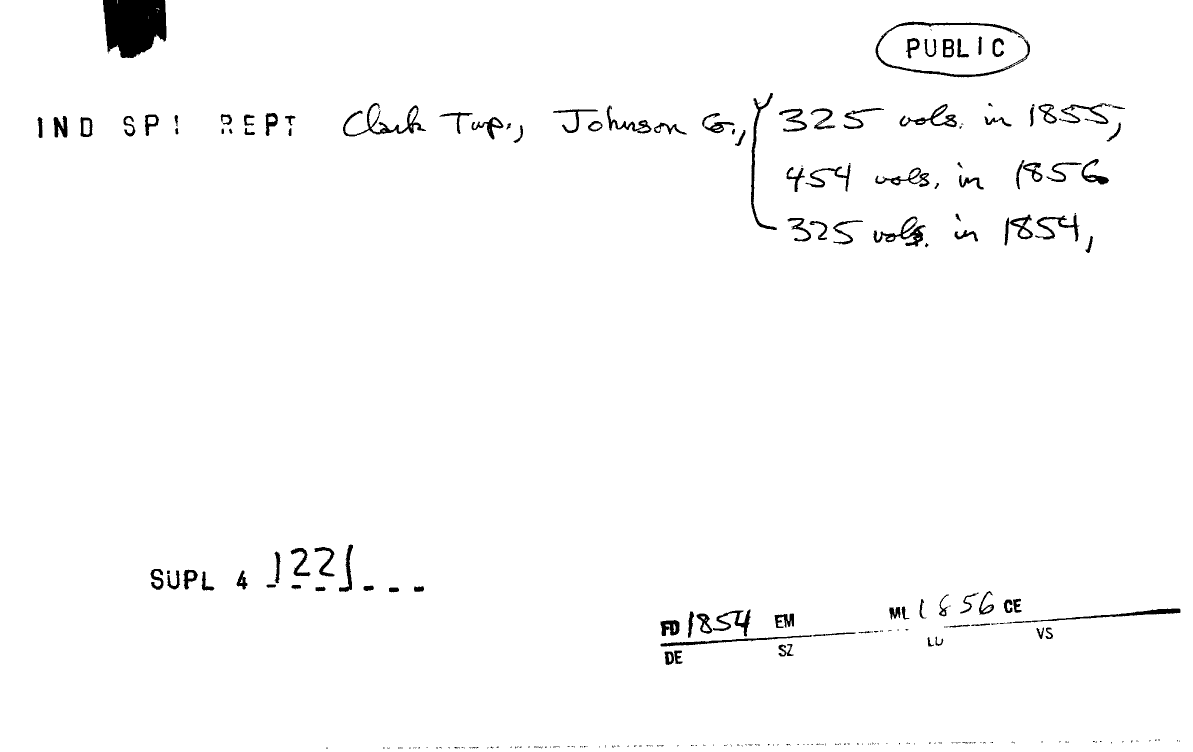 PUBLIC
IND SPI REPT Clark Twp., Johnson Co., 325 vols. in 1855,
454 vols. in 1856
325 vols. in 1854,
SUPL 4 1221
FD 1854 EM ML 1856 CE
DE SZ LU VS